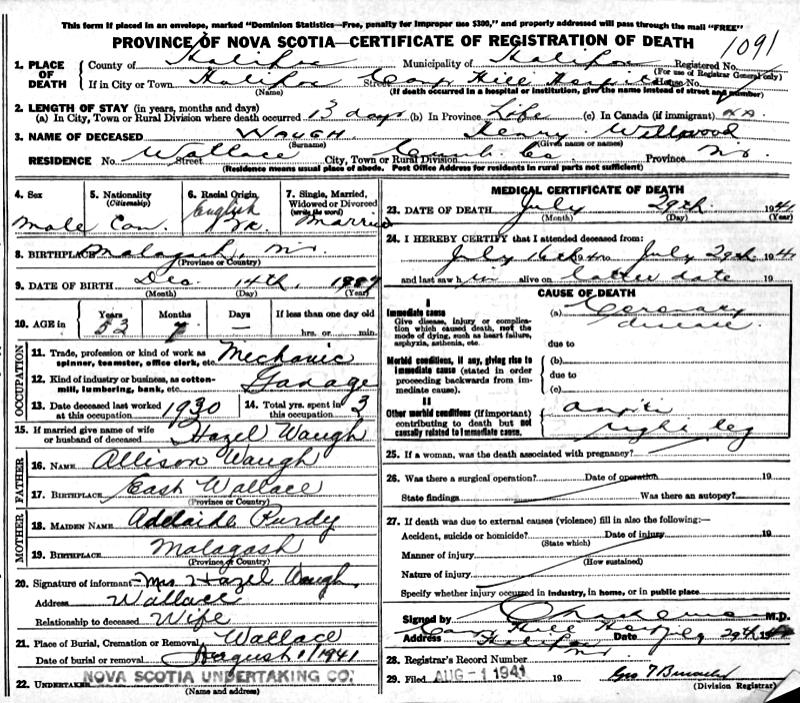 This form if placed in an envelope, marked "Dominion Statistics—Free, penalty for improper use $300," and properly addressed will pass through the mail "FREE"
PROVINCE OF NOVA SCOTIA—CERTIFICATE OF REGISTRATION OF DEATH
1091
1. PLACE OF DEATH
County of Halifax Municipality of Halifax Registered No.
(For use of Registrar General only)
If in City or Town Halifax Street Camp Hill Hospital House No.
(Name) (If death occurred in a hospital or institution, give the name instead of street and number)
2. LENGTH OF STAY (in years, months and days)
(a) In City, Town or Rural Division where death occurred 13 days (b) In Province Life (c) In Canada (if immigrant)
3. NAME OF DECEASED WAUGH Henry
(Surname) (Given name or names)
RESIDENCE No. Wallace Street City, Town or Rural Division Cumb. Co. Province N.S.
(Residence means usual place of abode. Post Office Address for residents in rural parts not sufficient)
4. Sex Male
5. Nationality (Citizenship) Can.
6. Racial Origin English
7. Single, Married, Widowed or Divorced (write the word) Married
8. BIRTHPLACE Malagash, N.S.
(Province or Country)
9. DATE OF BIRTH Dec. 14th, 1887
(Month) (Day) (Year)
10. AGE in Years 53 Months 7 Days — If less than one day old hrs. or min.
OCCUPATION
11. Trade, profession or kind of work as spinner, teamster, office clerk, etc. Mechanic
12. Kind of industry or business, as cotton-mill, lumbering, bank, etc. Garage
13. Date deceased last worked at this occupation 1930
14. Total yrs. spent in this occupation 3
15. If married give name of wife or husband of deceased Hazel Waugh
FATHER
16. NAME Allison Waugh
17. BIRTHPLACE East Wallace
(Province or Country)
MOTHER
18. MAIDEN NAME Adelaide Purdy
19. BIRTHPLACE Malagash
(Province or Country)
20. Signature of informant Mrs. Hazel Waugh
Address Wallace
Relationship to deceased Wife
21. Place of Burial, Cremation or Removal Wallace
Date of burial or removal August 1/1941
22. UNDERTAKER NOVA SCOTIA UNDERTAKING CO.
(Name and address)
MEDICAL CERTIFICATE OF DEATH
23. DATE OF DEATH July 29th 1941
(Month) (Day) (Year)
24. I HEREBY CERTIFY that I attended deceased from:
July 16th 1941 to July 29th 1941
and last saw him alive on latter date 19
CAUSE OF DEATH
I
Immediate cause
Give disease, injury or complication which caused death, not the mode of dying, such as heart failure, asphyxia, asthenia, etc.
(a) Coronary disease.
due to
Morbid conditions, if any, giving rise to immediate cause (stated in order proceeding backwards from immediate cause).
(b)
due to
(c)
II
Other morbid conditions (if important) contributing to death but not causally related to immediate cause.
right leg
25. If a woman, was the death associated with pregnancy?
26. Was there a surgical operation? Date of operation 19
State findings Was there an autopsy?
27. If death was due to external causes (violence) fill in also the following:—
Accident, suicide or homicide? Date of injury 19
(State which)
Manner of injury
(How sustained)
Nature of injury
Specify whether injury occurred in industry, in home, or in public place
Signed by M.D.
Address Camp Hill Hosp. Date July 29th 1941
Halifax N.S.
28. Registrar's Record Number
29. Filed AUG - 1 1941 19 Geo T
(Division Registrar)